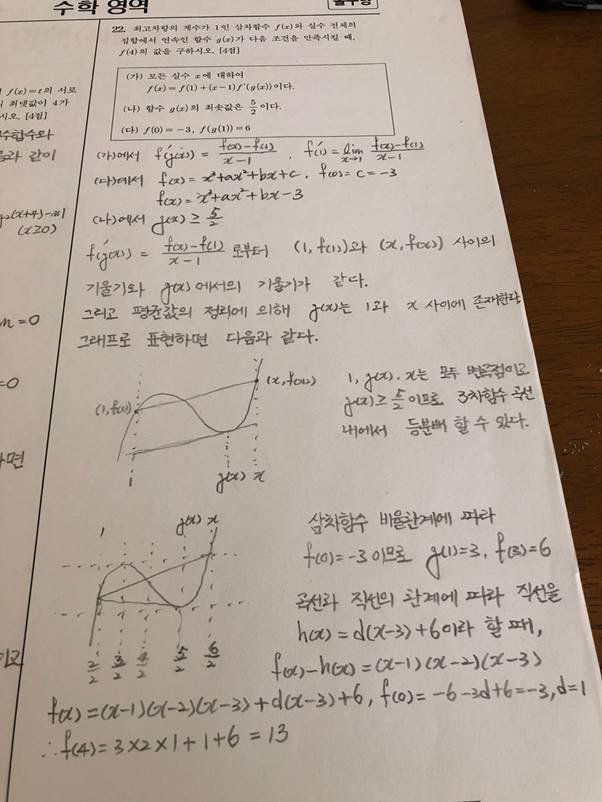 수학 영역
22. 최고차항의 계수가 1인 삼차함수 f(x)와 실수 전체의
집합에서 연속인 함수 g(x)가 다음 조건을 만족시킬 때,
f(4)의 값을 구하시오. [4점]
(가) 모든 실수 x에 대하여
f(x)=f(1)+(x-1)f'(g(x))이다.
(나) 함수 g(x)의 최솟값은 5/2이다.
(다) f(0)=-3, f(g(1))=6
(가)에서 f'(g(x)) = (f(x)-f(1))/(x-1), f'(1)=lim x→1 (f(x)-f(1))/(x-1)
(다)에서 f(x)=x³+ax²+bx+c, f(0)=c=-3
f(x)=x³+ax²+bx-3
(나)에서 g(x)≥5/2
f'(g(x)) = (f(x)-f(1))/(x-1) 로부터 (1, f(1))과 (x, f(x)) 사이의
기울기와 g(x)에서의 기울기가 같다.
그리고 평균값의 정리에 의해 g(x)는 1과 x 사이에 존재한다.
그래프로 표현하면 다음과 같다.
(1, f(1))
(x, f(x))
1
g(x) x
1, g(x), x는 모두 변곡점이고
g(x)≥5/2이므로 3차함수 곡선
내에서 등분배 할 수 있다.
1 g(x) x
2/2 3/2 4/2 5/2 6/2
삼차함수 비율관계에 따라
f(0)=-3이므로 g(1)=3, f(3)=6
곡선과 직선의 관계에 따라 직선을
h(x)=d(x-3)+6이라 할 때,
f(x)-h(x)=(x-1)(x-2)(x-3)
f(x)=(x-1)(x-2)(x-3)+d(x-3)+6, f(0)=-6-3d+6=-3, d=1
∴f(4)=3×2×1+1+6=13
f(x)=t의 서로
최댓값이 4가
시오. [4점]
수함수와
음과 같이
(x≥0)
=0
=0